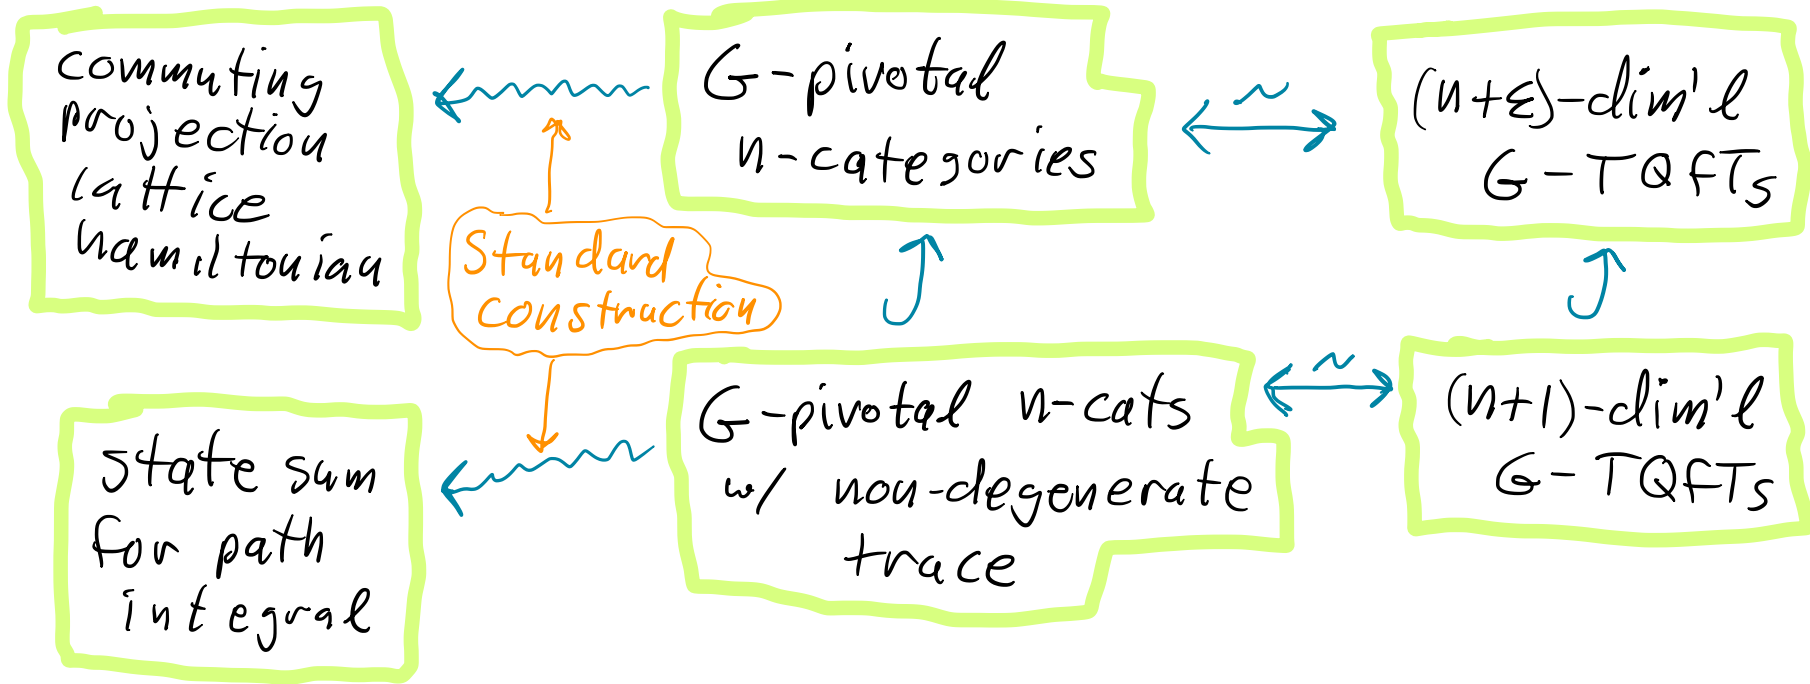 commuting
projection
lattice
hamiltonian
G-pivotal
n-categories
~
(n+ε)-dim'l
G-TQFTs
Standard
construction
state sum
for path
integral
G-pivotal n-cats
w/ non-degenerate
trace
~
(n+1)-dim'l
G-TQFTs